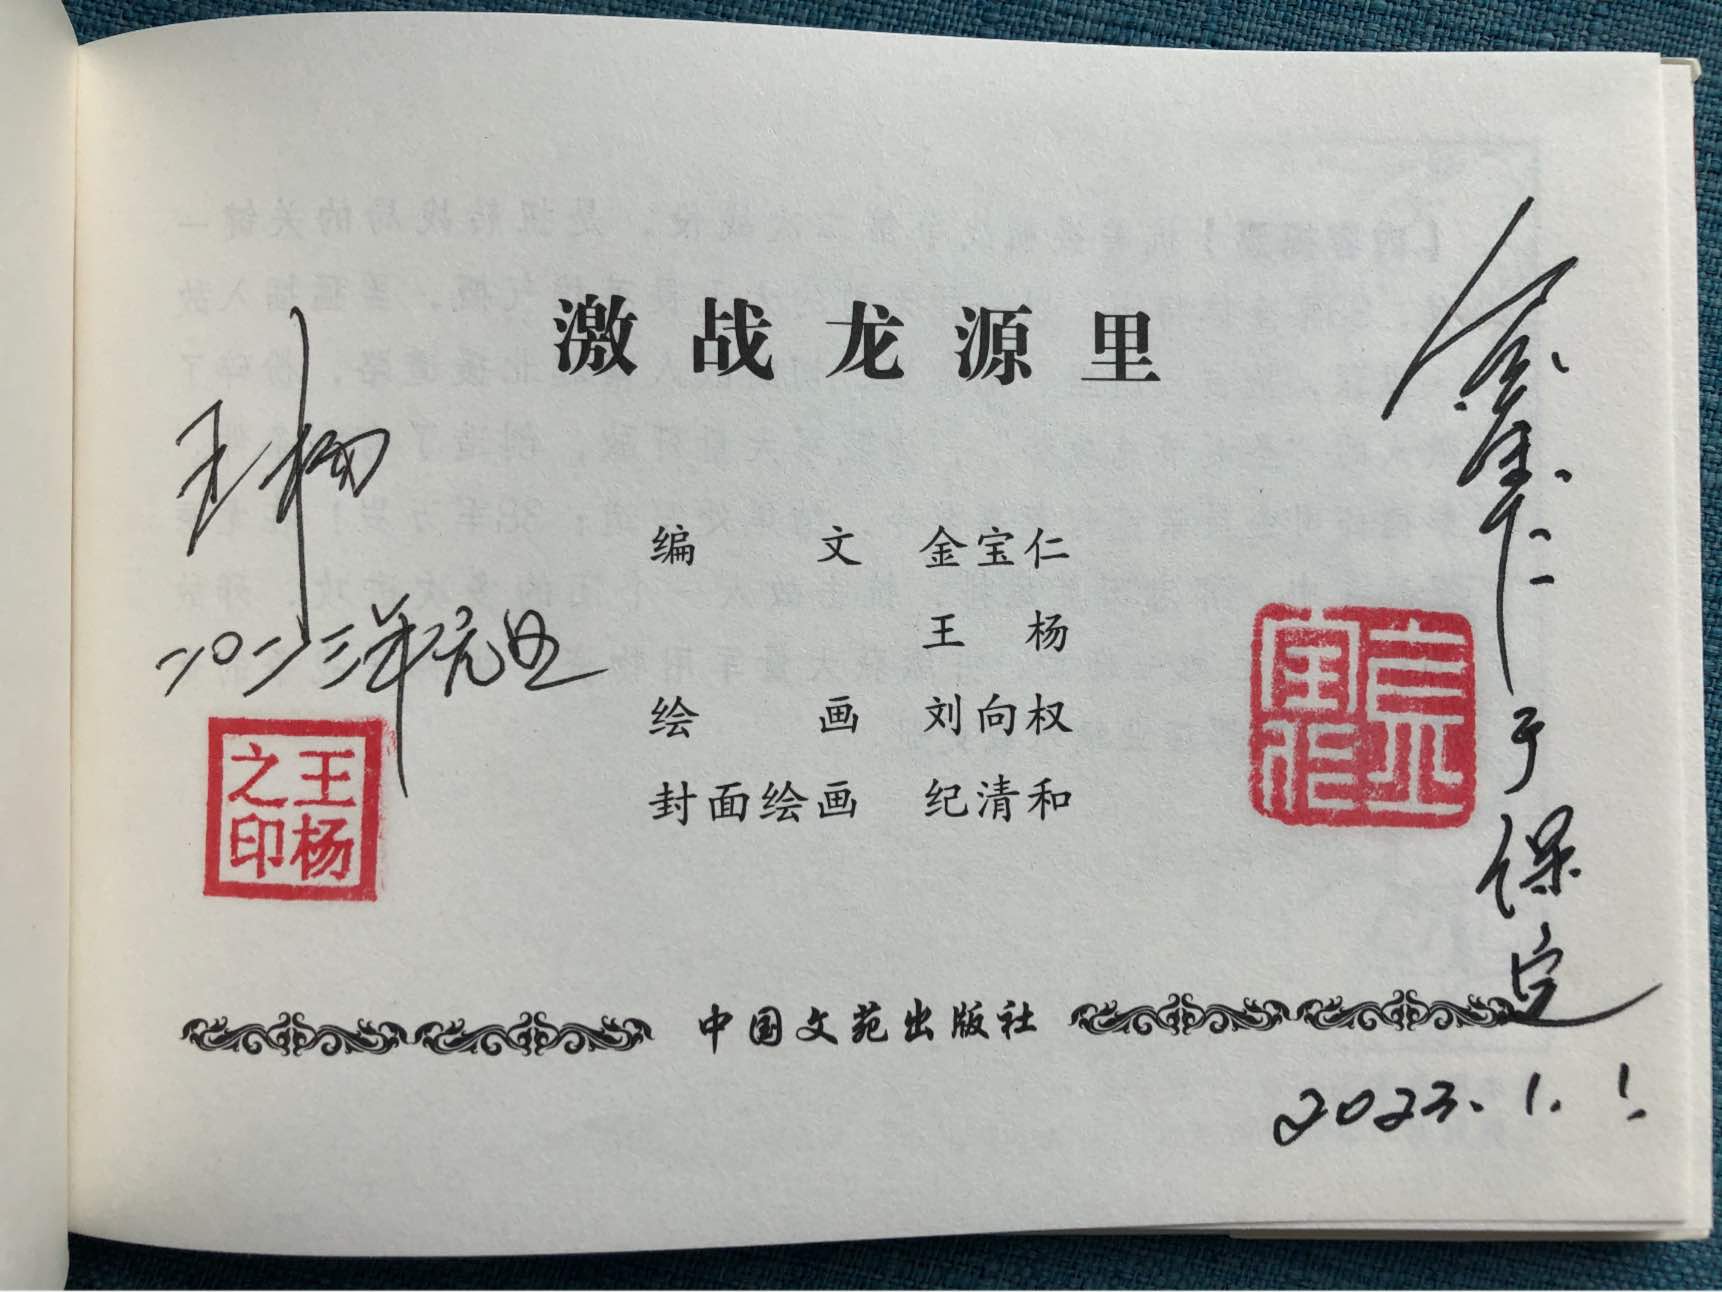 激战龙源里
编文 金宝仁
王杨
绘画 刘向权
封面绘画 纪清和
中国文苑出版社
王杨
二〇二三年元旦
王杨之印
金宝仁
于保定
2023.1.1